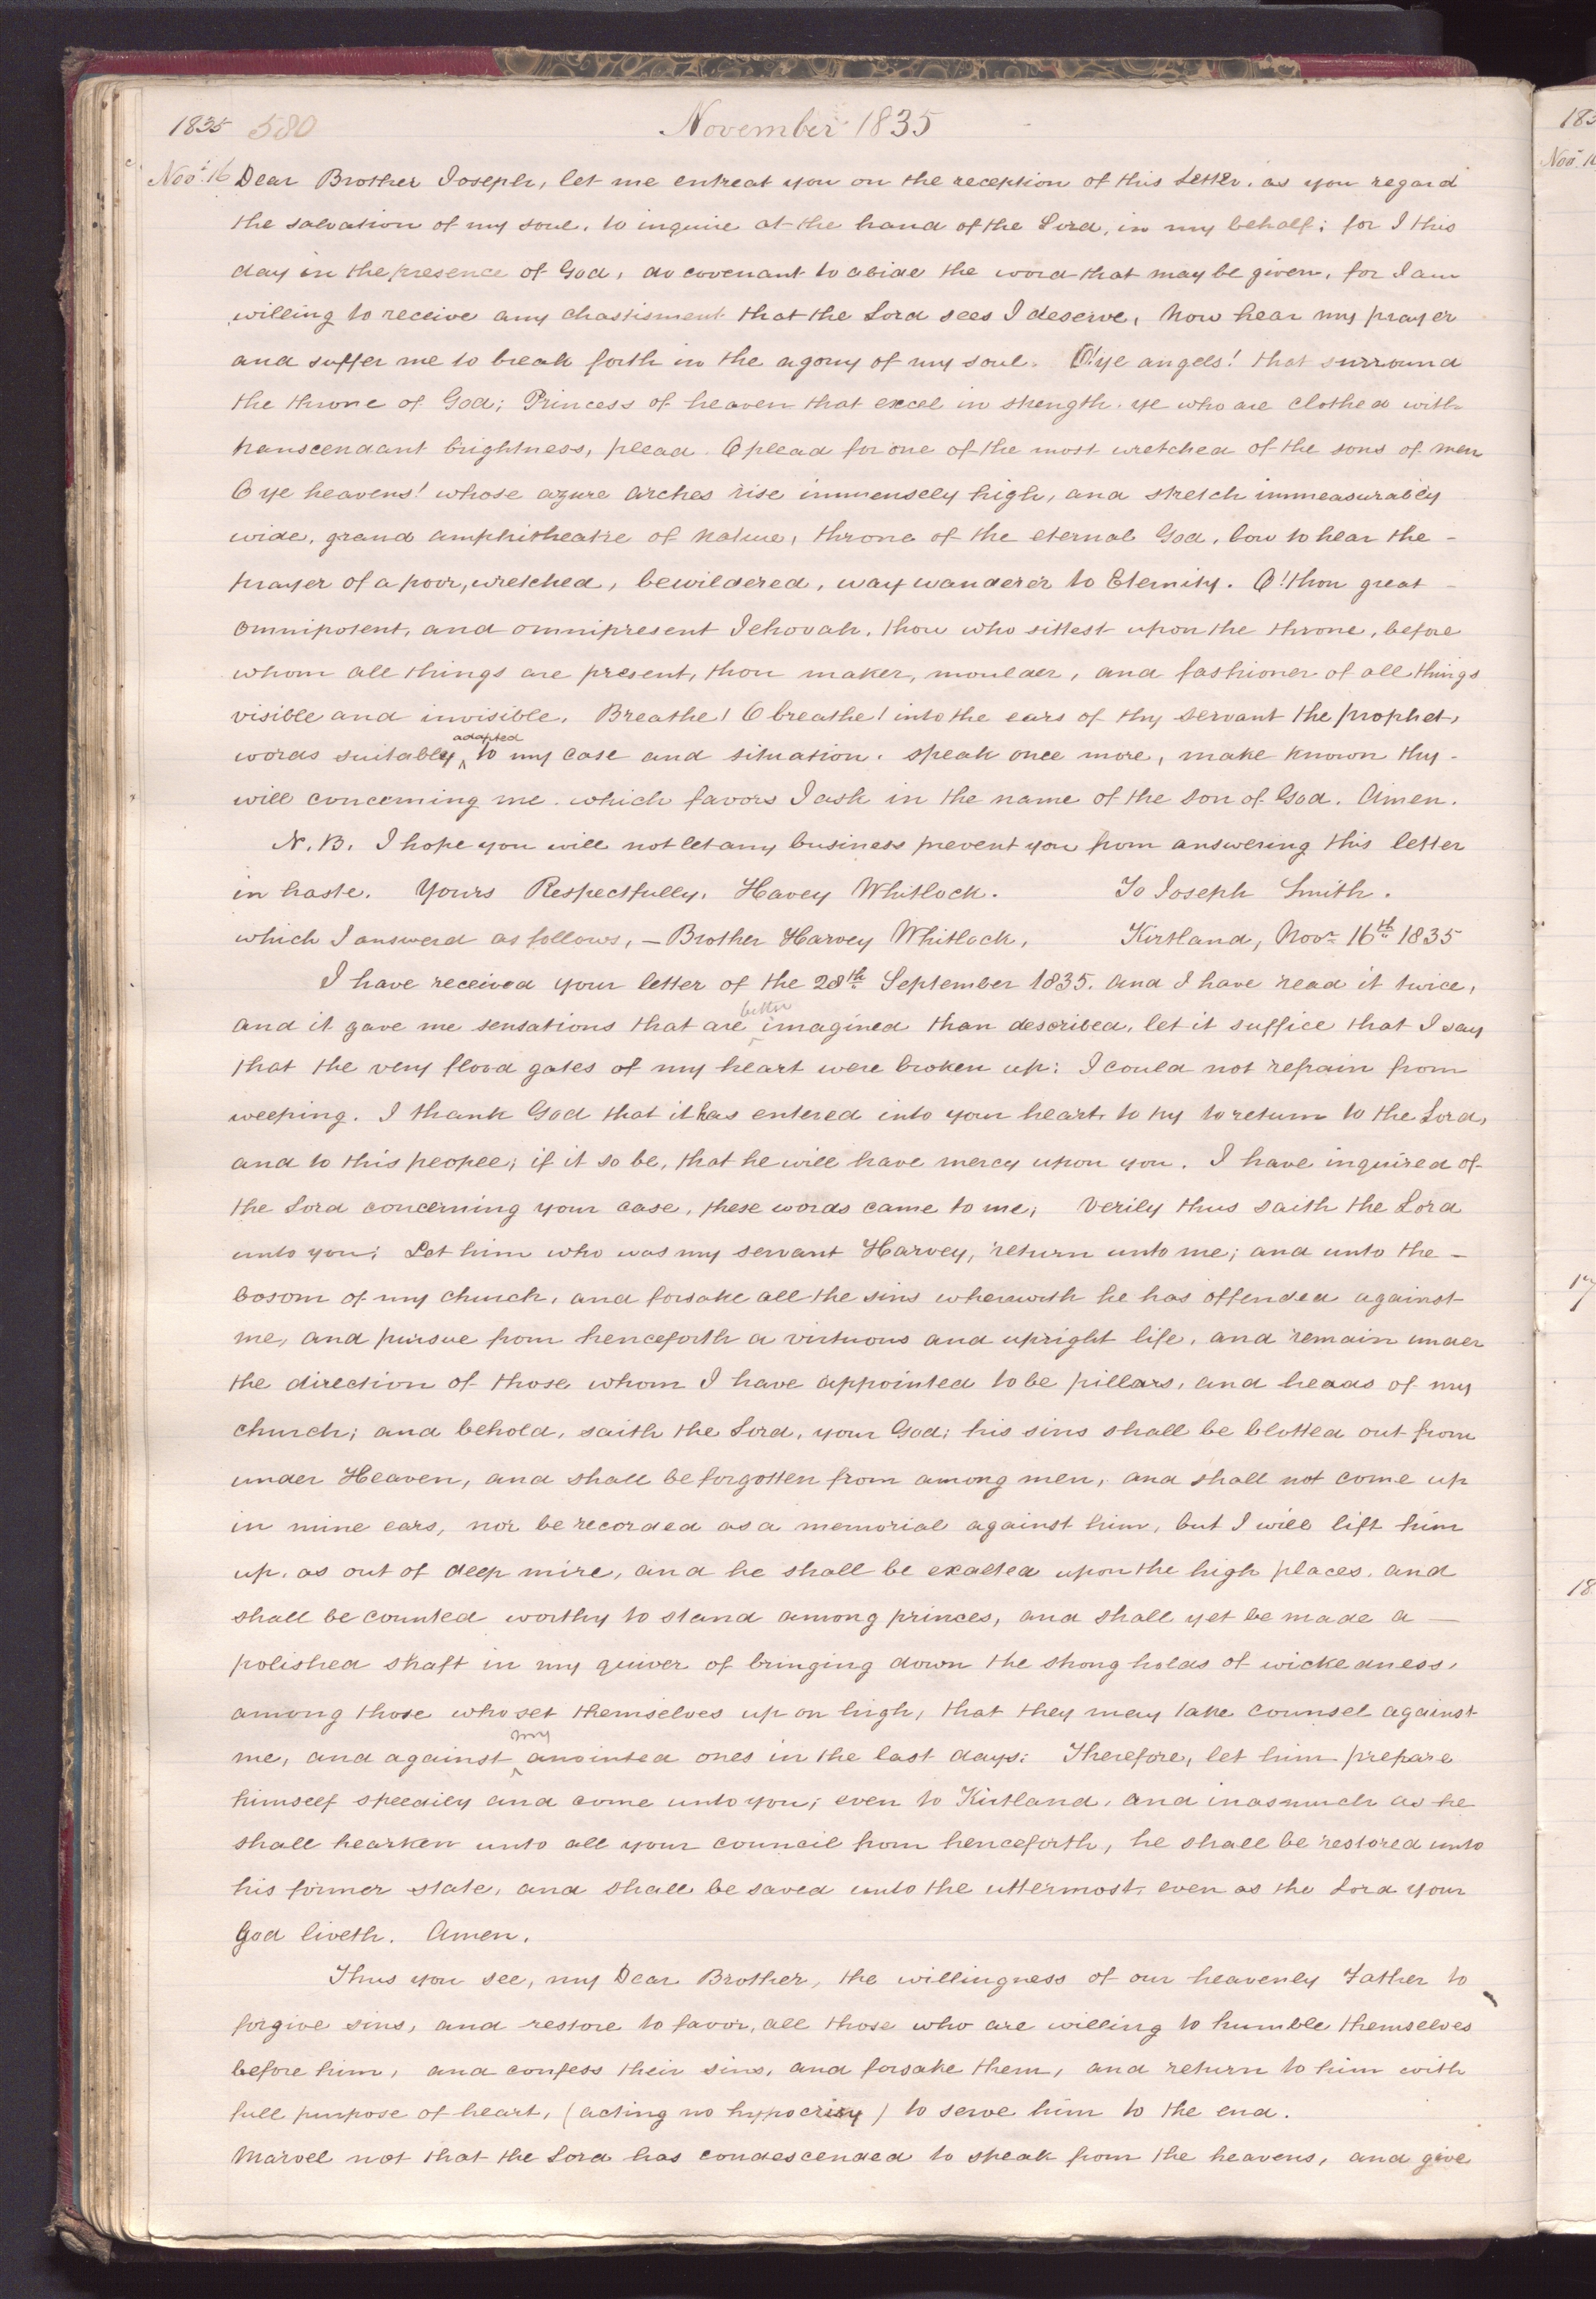 1835 580 November 1835
Novr. 16 Dear Brother Joseph, let me entreat you on the reception of this Letter, as you regard
the salvation of my soul, to inquire at the hand of the Lord, in my behalf; for I this
day in the presence of God, do covenant to abide the word that may be given, for I am
willing to receive any chastisment that the Lord sees I deserve, Now hear my prayer
and suffer me to break forth in the agony of my soul. O! ye angels! that surround
the throne of God; Princess of heaven that excel in strength. ye who are clothed with
transcendant brightness, plead. O plead for one of the most wretched of the sons of men
O ye heavens! whose azure arches rise immensely high, and stretch immeasurably
wide, grand amphitheatre of nature, throne of the eternal God, bow to hear the -
prayer of a poor, wretched, bewildered, way wanderer to Eternity. O! thou great -
omnipotent, and omnipresent Jehovah, thou who sittest upon the throne, before
whom all things are present, thou maker, moulder, and fashioner of all things
visible and invisible, Breathe! O breathe! into the ears of thy servant the prophet,
words suitably ^adapted to my case and situation. speak once more, make known thy -
will concerning me. which favors I ask in the name of the son of God. Amen.
N. B. I hope you will not let any business prevent you from answering this letter
in haste. Yours Respectfully, Havey Whitlock. To Joseph Smith.
which I answerd as follows, — Brother Harvey Whitlock, Kirtland, Novr. 16th 1835
I have received your letter of the 28th September 1835. and I have read it twice,
and it gave me sensations that are ^better imagined than described, let it suffice that I say
that the very flood gates of my heart were broken up: I could not refrain from
weeping. I thank God that it has entered into your heart, to try to return to the Lord,
and to this people; if it so be, that he will have mercy upon you. I have inquired of
the Lord concerning your case, these words came to me; Verily thus saith the Lord
unto you; Let him who was my servant Harvey, return unto me; and unto the -
bosom of my church, and forsake all the sins wherewith he has offended against
me, and pursue from henceforth a virtuous and upright life, and remain under
the direction of those whom I have appointed to be pillars, and heads of my
church; and behold, saith the Lord, your God; his sins shall be blotted out from
under Heaven, and shall be forgotten from among men, and shall not come up
in mine ears, nor be recorded as a memorial against him, but I will lift him
up, as out of deep mire, and he shall be exalted upon the high places, and
shall be counted worthy to stand among princes, and shall yet be made a —
polished shaft in my quiver of bringing down the strong holds of wickedness,
among those who set themselves up on high, that they may take counsel against
me, and against ^my anointed ones in the last days: Therefore, let him prepare
himself speedily and come unto you; even to Kirtland, and inasmuch as he
shall hearken unto all your council from henceforth, he shall be restored unto
his former state, and shall be saved unto the uttermost, even as the Lord your
God liveth. Amen.
Thus you see, my Dear Brother, the willingness of our heavenly Father to
forgive sins, and restore to favor, all those who are willing to humble themselves
before him, and confess their sins, and forsake them, and return to him with
full purpose of heart, (acting no hypocrisy) to serve him to the end.
Marvel not that the Lord has condescended to speak from the heavens, and give
183
Nov. 16
17
18